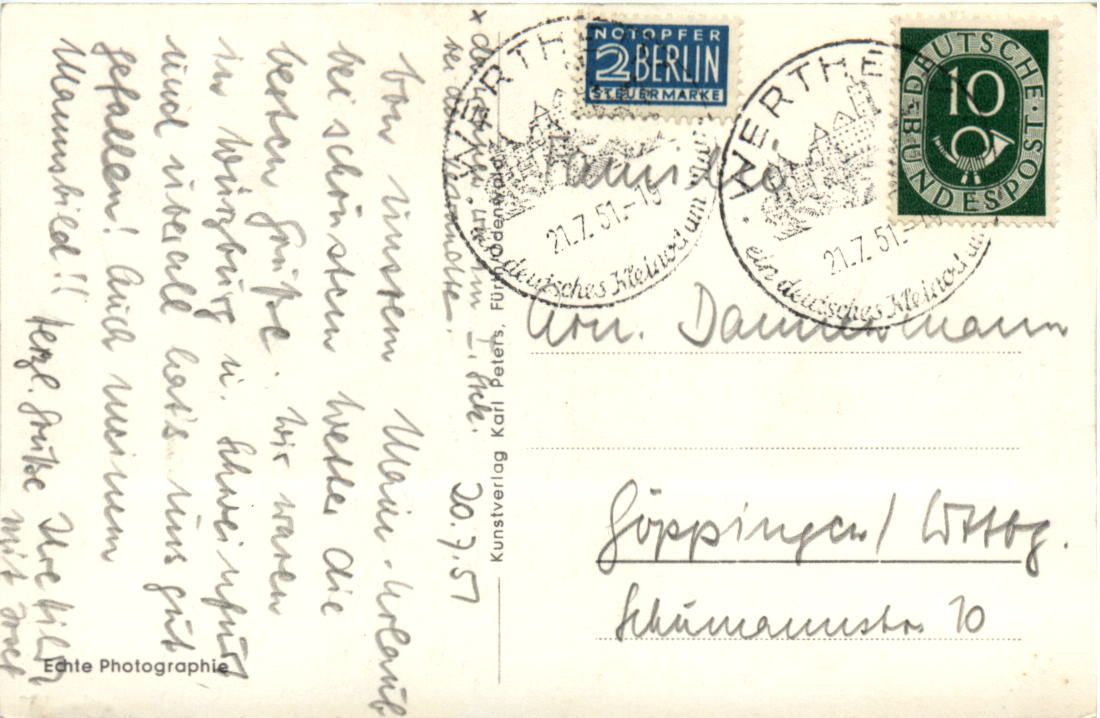 NOTOPFER
2 BERLIN
STEUERMARKE
DEUTSCHE
BUNDESPOST
10
WERTHEIM
21.7.51.-19
ein deutsches Kleinod am Main
WERTHE
21.7.51.-19
ein deutsches Kleinod am
Familie
Dannemann
Göppingen / Wttbg.
Schumannstr. 10
Kunstverlag Karl Peters, Fürth Odenwald
Echte Photographie
20.7.51
Von unserem Main-Urlaub
bei schönstem Wetter die
besten Grüße. Wir waren
in Würzburg u. Schweinfurt
und überall hat's uns gut
gefallen! Auch meinem
Mannsbild!! Herzl. Grüße Ihre
mit
x
bei